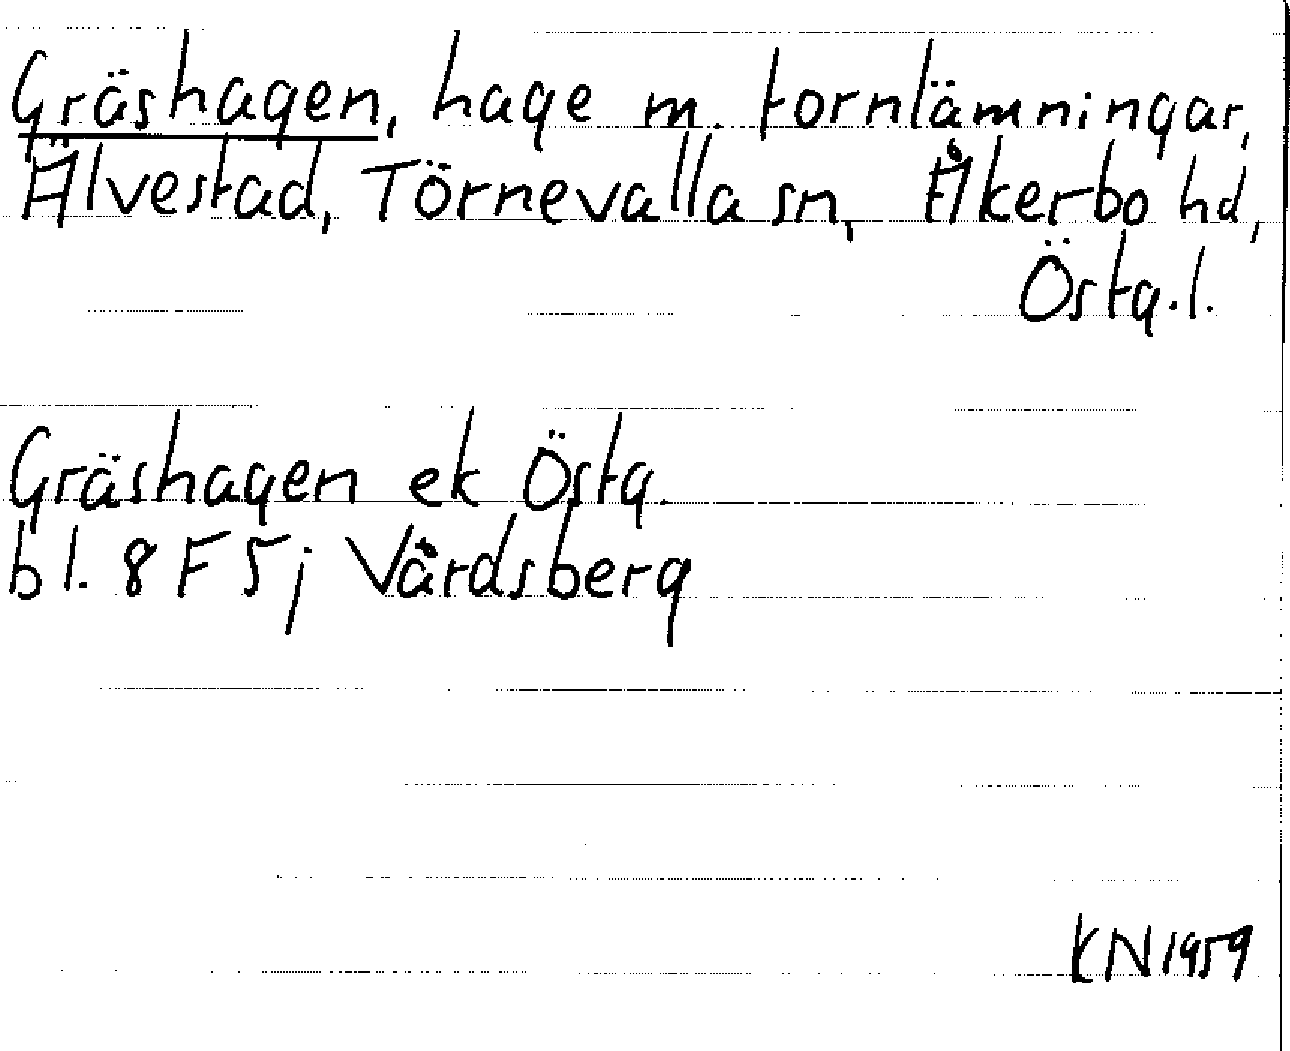 Gräshagen, hage m. fornlämningar,
Älvestad, Törnevalla sn, Åkerbo hd,
Östg.l.
Gräshagen ek Östg.
bl. 8 F 5 j Vårdsberg
KN 1959